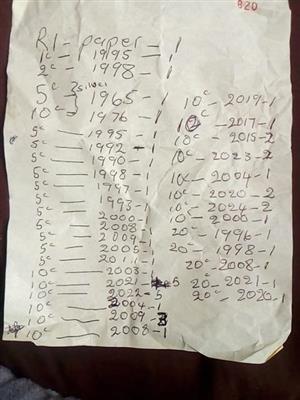 820
R1 - paper - 1
1c - 1995 - 1
2c - 1998 - 1
5c } silver 1965 - 1
10c } 1976 - 1
5c — 1995 - 1
5c — 1992 - 1
5c — 1990 - 1
5c — 1998 - 1
5c — 1997 - 1
5c — 1993 - 1
5c — 2000 - 1
5c — 2008 - 1
5c — 2009 - 1
5c — 2005 - 1
5c — 2011 - 1
10c — 2003 - 1
10c — 2021 - 5
10c — 2022 - 5
10c — 2004 - 1
10c — 2009 - 3
10c — 2008 - 1
10c - 2019 - 1
10c - 2017 - 1
10c - 2015 - 2
10c - 2023 - 2
10c - 2004 - 1
10c - 2020 - 2
10c - 2024 - 2
10c - 2000 - 1
20c - 1996 - 1
20c - 1998 - 1
20c - 2008 - 1
20c - 2021 - 1
20c - 2020 - 1